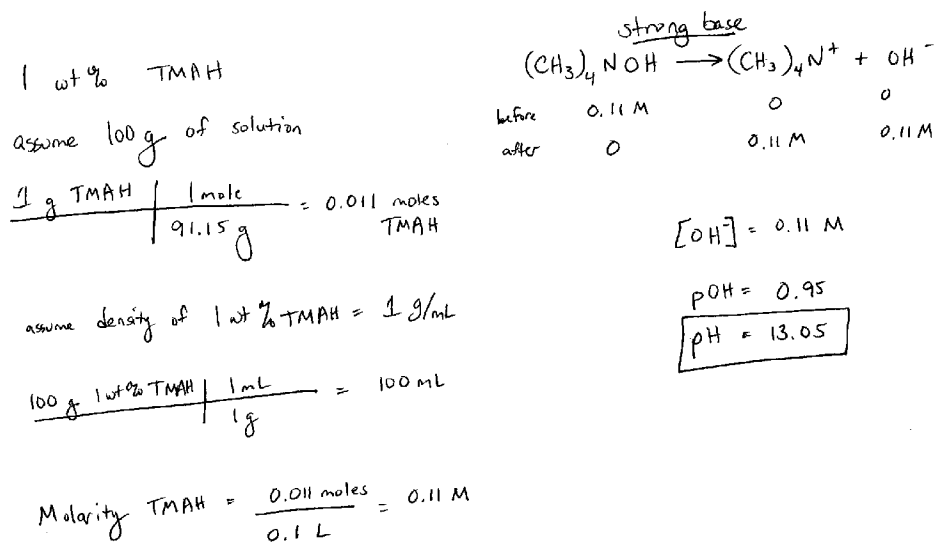 1 wt % TMAH
assume 100 g of solution
1 g TMAH | 1 mole = 0.011 moles
91.15 g TMAH
assume density of 1 wt % TMAH = 1 g/mL
100 g 1 wt % TMAH | 1 mL = 100 mL
1 g
Molarity TMAH = 0.011 moles = 0.11 M
0.1 L
strong base
(CH3)4 NOH → (CH3)4 N+ + OH-
before 0.11 M 0 0
after 0 0.11 M 0.11 M
[OH-] = 0.11 M
pOH = 0.95
pH = 13.05